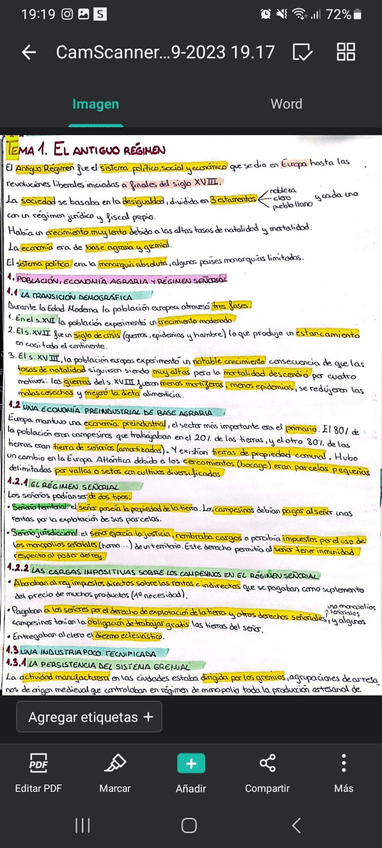 19:19 S 72%
CamScanner...9-2023 19.17
Imagen Word
TEMA 1. EL ANTIGUO RÉGIMEN
El Antiguo Régimen fue el sistema político, social y económico que se dio en Europa hasta las
revoluciones liberales iniciadas a finales del siglo XVIII.
La sociedad se basaba en la desigualdad, dividida en 3 estamentos nobleza clero pueblo llano y cada uno
con un régimen jurídico y fiscal propio.
Había un crecimiento muy lento debido a las altas tasas de natalidad y mortalidad.
La economía era de base agraria y gremial.
El sistema político era la monarquía absoluta, algunos países monarquías limitadas.
1. POBLACIÓN, ECONOMÍA AGRARIA Y RÉGIMEN SEÑORIAL
1.1 LA TRANSICIÓN DEMOGRÁFICA
Durante la Edad Moderna la población europea atravesó tres fases:
1. En el s.XVI, la población experimentó un crecimiento moderado.
2. El s.XVII fue un siglo de crisis (guerras, epidemias y hambre) lo que produjo un estancamiento
en casi todo el continente.
3. El s.XVIII, la población europea experimentó un notable crecimiento consecuencia de que las
tasas de natalidad siguieron siendo muy altas pero la mortalidad descendió por cuatro
motivos: las guerras del s.XVIII fueron menos mortíferas, menos epidemias, se redujeron las
malas cosechas y mejoró la dieta alimenticia.
1.2 UNA ECONOMÍA PREINDUSTRIAL DE BASE AGRARIA
Europa mantuvo una economía preindustrial, el sector más importante era el primario. El 80% de
la población eran campesinos que trabajaban en el 20% de las tierras, y el otro 80% de las
tierras eran tierras de señoríos (amortizadas). Y existían tierras de propiedad comunal. Hubo
un cambio en la Europa Atlántica debido a los cercamientos (bocage) eran parcelas pequeñas
delimitadas por vallas o setos con cultivos diversificados.
1.2.1 EL RÉGIMEN SEÑORIAL
Los señoríos podían ser de dos tipos:
• Señorío territorial: el señor poseía la propiedad de la tierra. Los campesinos debían pagar al señor unas
rentas por la explotación de sus parcelas.
• Señorío jurisdiccional: el señor ejercía la justicia, nombraba cargos o percibía impuestos por el uso de
los monopolios señoriales (horno...) de un territorio. Este derecho permitía al señor tener inmunidad
respecto al poder del rey.
1.2.2 LAS CARGAS IMPOSITIVAS SOBRE LOS CAMPESINOS EN EL RÉGIMEN SEÑORIAL
• al rey impuestos directos sobre las rentas e indirectos que se pagaban como suplemento
del precio de muchos productos (1ª necesidad).
• Pagaban a los señores por el derecho de explotación de la tierra y otros derechos señoriales, y algunos
monopolios señoriales
campesinos tenían la obligación de trabajar gratis las tierras del señor.
• Entregaban al clero el diezmo eclesiástico.
1.3 UNA INDUSTRIA POCO TECNIFICADA
1.3.1 LA PERSISTENCIA DEL SISTEMA GREMIAL
La actividad manufacturera en las ciudades estaba dirigida por los gremios, agrupaciones de artesa
nos de origen medieval que controlaban en régimen de monopolio toda la producción artesanal de
Agregar etiquetas +
PDF
Editar PDF Marcar Añadir Compartir Más